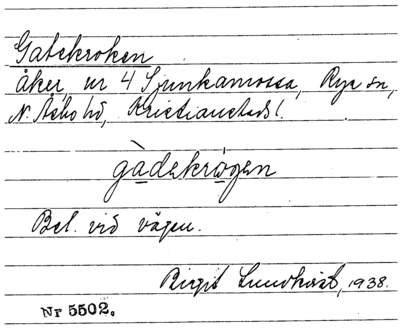 Gatekroken
åker, nr 4 Ljunkamossa, Rye sn,
N. Åsbo hd, Kristianstads l.
gàdekrǫgen
Bel. vid vägen.
Birgit Lundkvist, 1938.
Nr 5502.